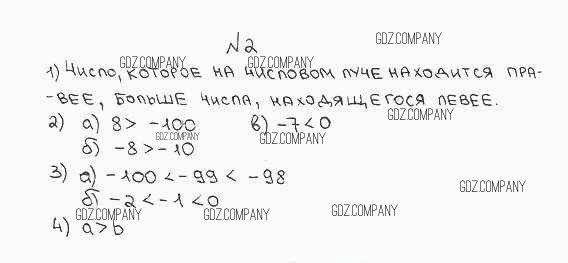 №2
GDZ.COMPANY
GDZ.COMPANY GDZ.COMPANY
1) Число, которое на числовом луче находится пра-
-вее, больше числа, находящегося левее.
GDZ.COMPANY
2) а) 8 > -100 в) -7 < 0
GDZ.COMPANY GDZ.COMPANY
б) -8 > -10
3) а) -100 < -99 < -98
GDZ.COMPANY
б) -2 < -1 < 0
GDZ.COMPANY GDZ.COMPANY GDZ.COMPANY
4) a > b